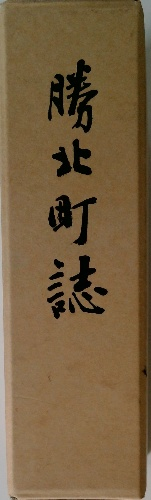 勝北町誌